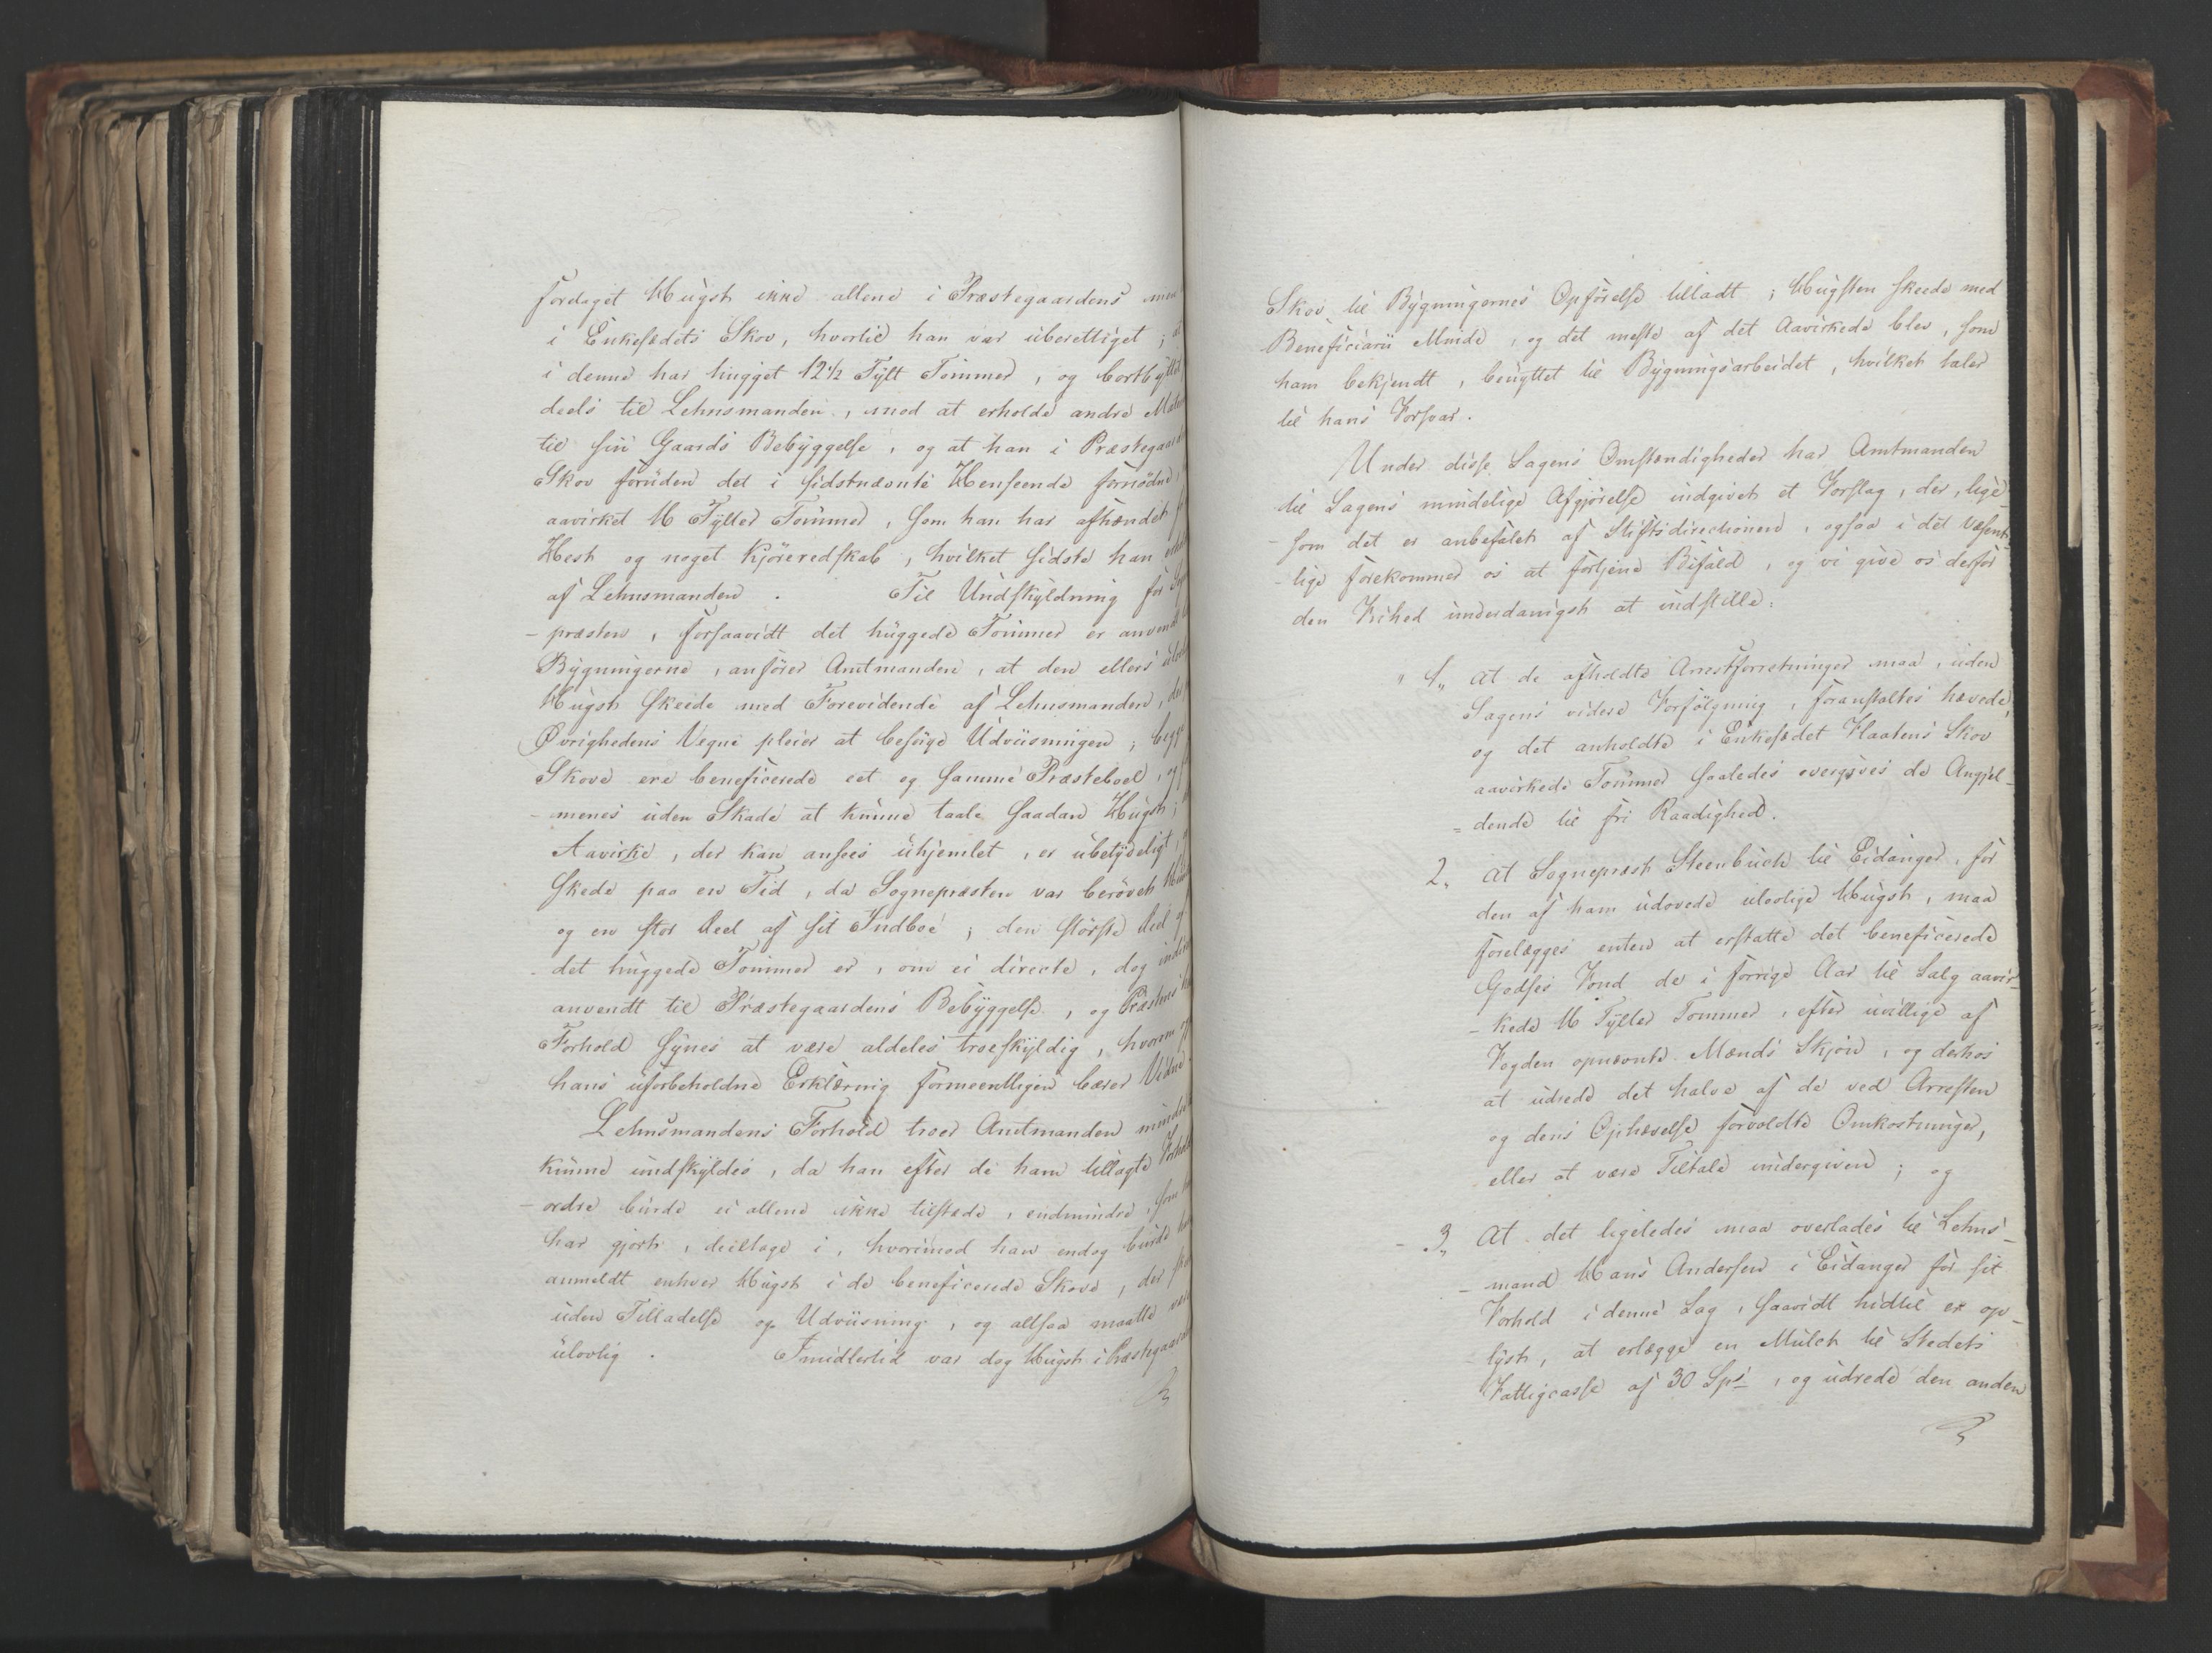 foretaget Hugst ikke allene i Præstegaardens men
i Enkesædets Skov, hvortil han var uberettiget; at
i denne har hugget 12 1/2 Tylt Tømmer, og bortbyttet
deels til Lehnsmanden, mod at erholde andre
til sin Gaards Bebyggelse, og at han i
Skov foruden det i sidstnævnte Henseende fornødne,
aavirket 16 Tylter Tømmer, som han har afhændet
Hest og noget Kjøreredskab, hvilket sidste han
af Lehnsmanden. Til Undskyldning for
-præsten, forsaavidt det huggede Tømmer er anvendt
Bygningerne, anfører Amtmanden, at den ellers
Hugst skeede med Forevidende af Lehnsmanden,
Øvrighedens Vegne pleier at besøge Udviisningen; begge
Skove ere beneficerede eet og samme Præsteboel,
-menes uden Skade at kunne taale saadan Hugst;
Aavirke, der kan ansees uhjemlet, er ubetydeligt,
skede paa en Tid, da Sognepræsten var berøvet
og en stor Deel af sit Indboe; den største Deel af
det huggede Tømmer er, om ei directe, dog
anvendt til Præstegaardens Bebyggelse, og Præstens
Forhold synes at være aldeles troeskyldig, hvorom
hans uforbeholdne Erklæring formeentligen bærer Vidne
Lehnsmandens Forhold troer Amtmanden mindre
kunne undskyldes, da han efter de ham tillagte
-ordre burde ei allene ikke tilstede, endmindre, som
har gjort, deeltage i, hvorimod han endog burde
anmeldt enhver Hugst i de beneficerede Skove, der
uden Tilladelse og Udviisning, og altsaa maatte være
ulovlig. Imidlertid var dog Hugst i
Skov til Bygningernes Opførelse tilladt; Hugsten skeede med
Beneficiarii Minde, og det meste af det Aavirkede blev, som
ham bekjendt, benyttet til Bygningsarbeidet, hvilket taler
til hans Forsvar.
Under disse Sagens Omstændigheder har Amtmanden
til Sagens mindelige Afgjørelse indgivet et Forslag, der, lige-
-som det er anbefalet af Stiftsdirectionen, ogsaa i det væsent-
-lige forekommer os at fortjene Bifald, og vi give os derfor
den Frihed underdanigst at indstille:
" 1., at de afholdte Arrestforretninger maa, uden
Sagens videre Forfølgning, foranstaltes hævede,
og det anholdte i Enkesædet Flaatens Skov
aavirkede Tømmer saaledes overgives de Angjel-
=dende til fri Raadighed.
2., at Sognepræst Steenbuch til Eidanger, for
den af ham udøvede ulovlige Hugst, maa
forelægges enten at erstatte det beneficerede
Godses Fond de i forrige Aar til Salg aavir-
-kede 16 Tylter Tømmer, efter uvillige af
Fogden opnævnte Mænds Skjøn, og derhos
at udrede det halve af de ved Arresten
og dens Ophævelse forvoldte Omkostninger,
eller at være Tiltale undergiven; og
- 3., At det ligeledes maa overlades til Lehns-
-mand Hans Andersen i Eidanger for sit
Forhold i denne Sag, saavidt hidtil er op-
lyst, at erlægge en Mulct til Stedets
Fattigcasse af 30 Spd, og udrede den anden